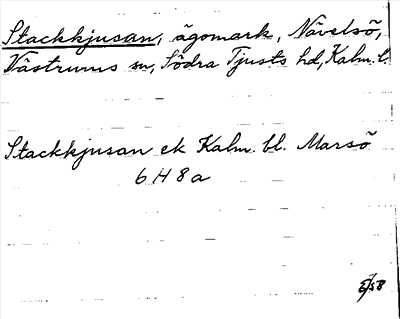 Stackkjusan, ägomark, Nävelsö,
Västrums sn, Södra Tjusts hd, Kalm. l.
Stackkjusan ek Kalm. bl. Marsö
6 H 8 a